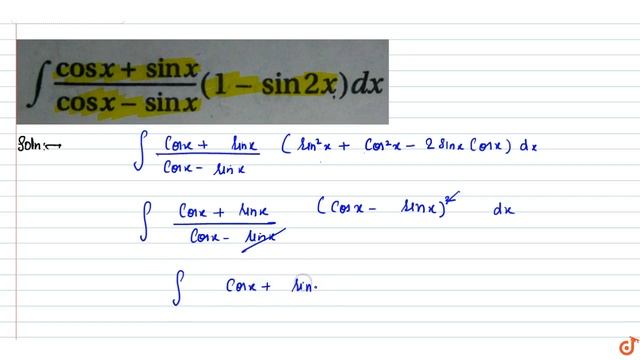 ∫ (cos x + sin x)/(cos x − sin x) (1 − sin 2x) dx
Soln:→ ∫ (Cosx + sinx)/(Cosx − sinx) (sin²x + Cos²x − 2 sinx Cosx) dx
∫ (Cosx + sinx)/(Cosx − sinx) (Cosx − sinx)² dx
∫ Cosx + sin.
d